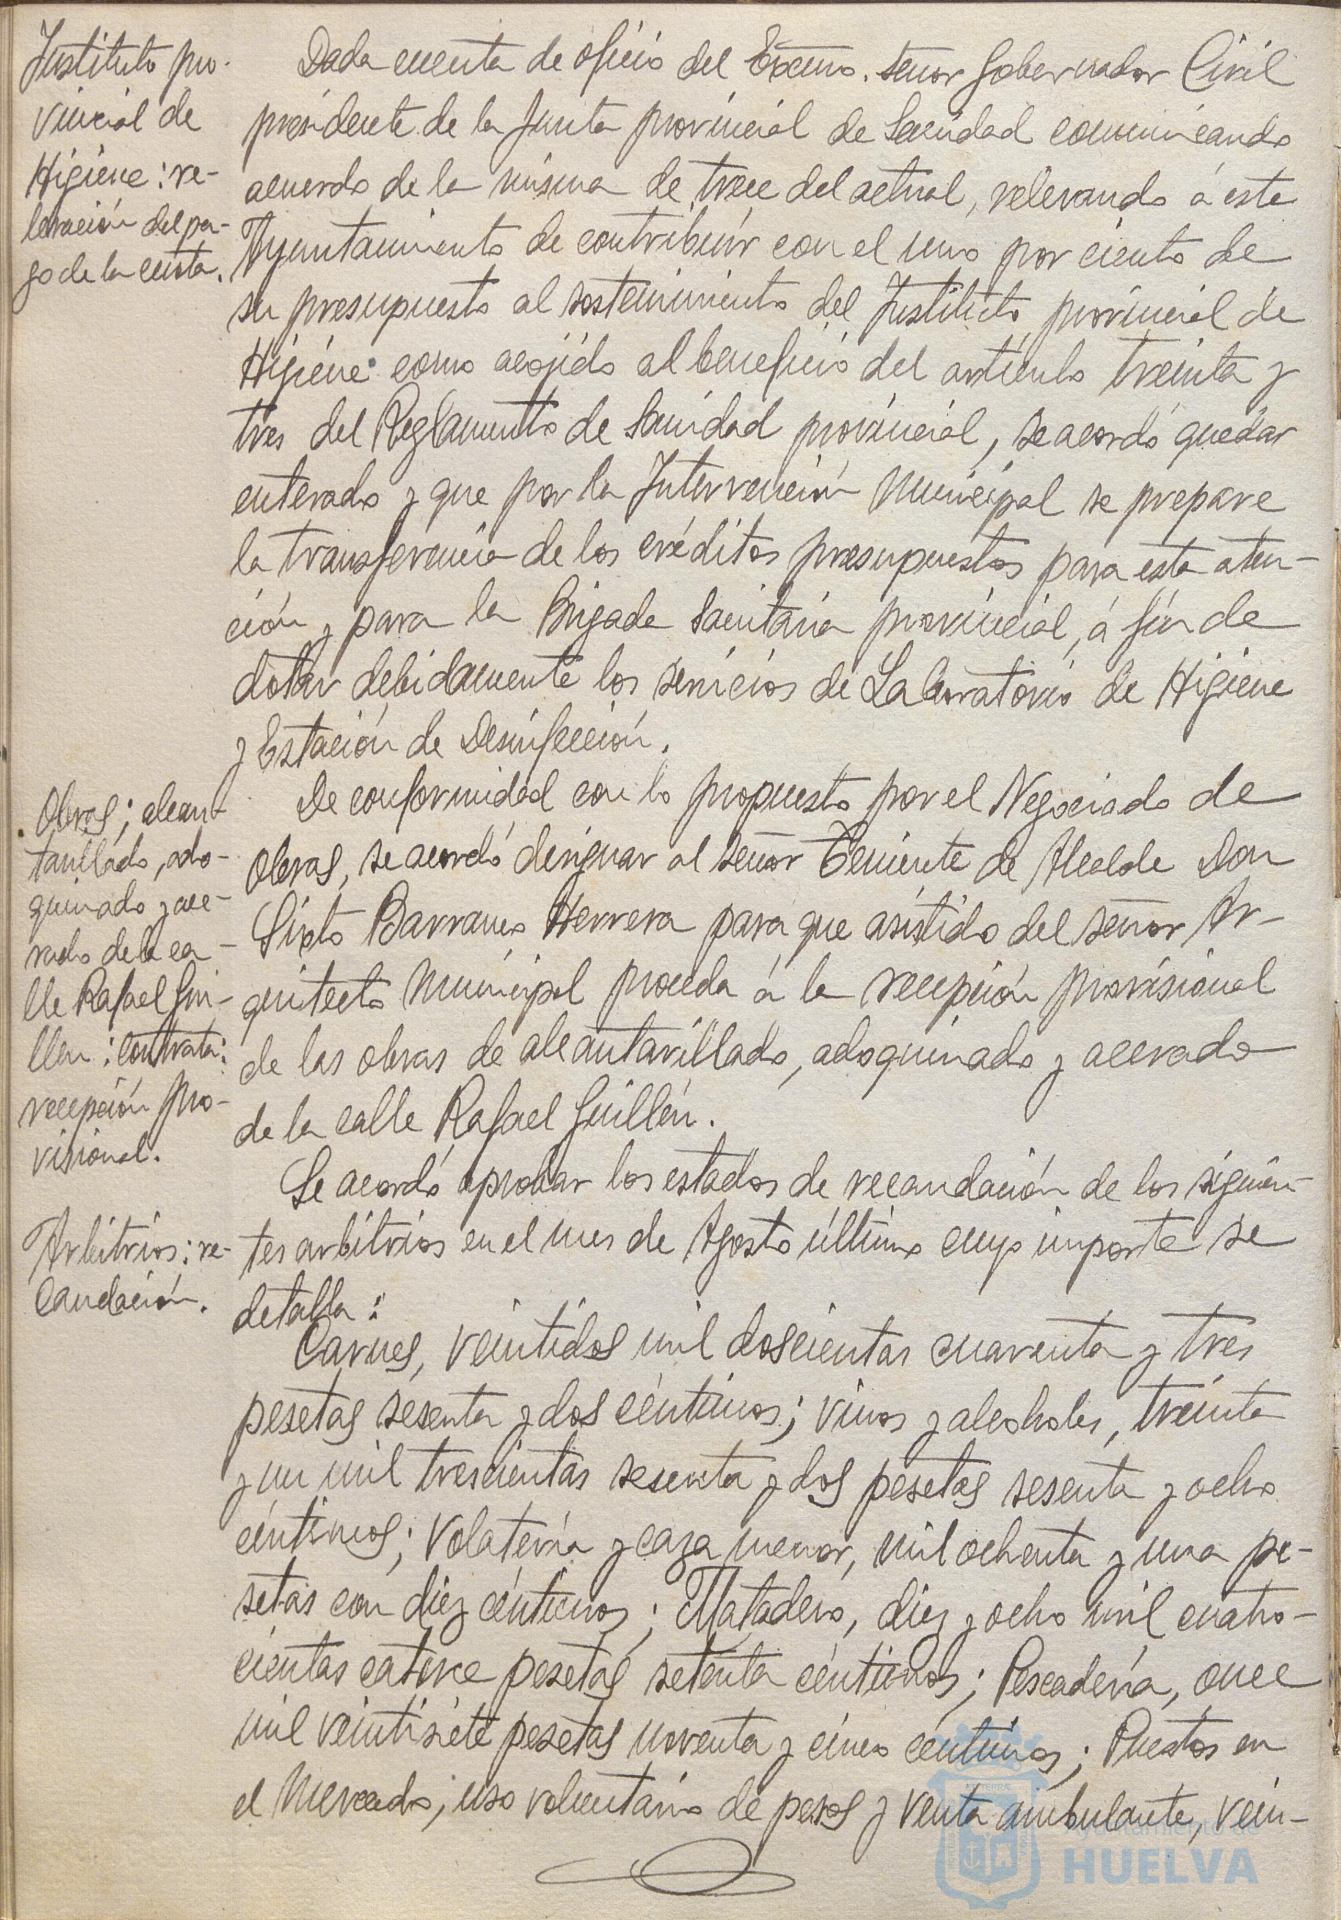 Instituto pro-
vincial de
Higiene: re-
levación del pa-
go de la cuota.
Dada cuenta de oficio del Excmo. señor Gobernador Civil
presidente de la Junta provincial de Sanidad comunicando
acuerdo de la misma de trece del actual, relevando á este
Ayuntamiento de contribuir con el uno por ciento de
su presupuesto al sostenimiento del Instituto provincial de
Higiene como acojido al beneficio del artículo treinta y
tres del Reglamento de Sanidad provincial, se acordó quedar
enterado y que por la Intervención Municipal se prepare
la transferencia de los créditos presupuestos para esta aten-
ción y para la Brigada Sanitaria provincial, á fín de
dotar debidamente los servicios de Laboratorio de Higiene
y Estación de Desinfección.
Obras; alcan-
tarillado, ado-
quinado y ace-
rado de la ca-
lle Rafael Gui-
llen: contrata:
recepción pro-
visional.
De conformidad con lo propuesto por el Negociado de
Obras, se acordó designar al señor Teniente de Alcalde Don
Sixto Barranco Herrera para que asistido del señor Ar-
quitecto Municipal proceda á la recepción provisional
de las obras de alcantarillado, adoquinado y acerado
de la calle Rafael Guillén.
Arbitrios: re-
caudación.
Se acordó aprobar los estados de recaudación de los siguien-
tes arbitrios en el mes de Agosto último cuyo importe se
detalla:
Carnes, veintidos mil doscientas cuarenta y tres
pesetas sesenta y dos céntimos; vinos y alcoholes, treinta
y un mil trescientas sesenta y dos pesetas sesenta y ocho
céntimos; Volatería y caza menor, mil ochenta y una pe-
setas con diez céntimos; Matadero, diez y ocho mil cuatro-
cientas catorce pesetas setenta céntimos; Pescadería, once
mil veintisiete pesetas noventa y cinco céntimos; Puestos en
el Mercado; uso voluntario de pesos y venta ambulante, vein-
Ayuntamiento de
HUELVA